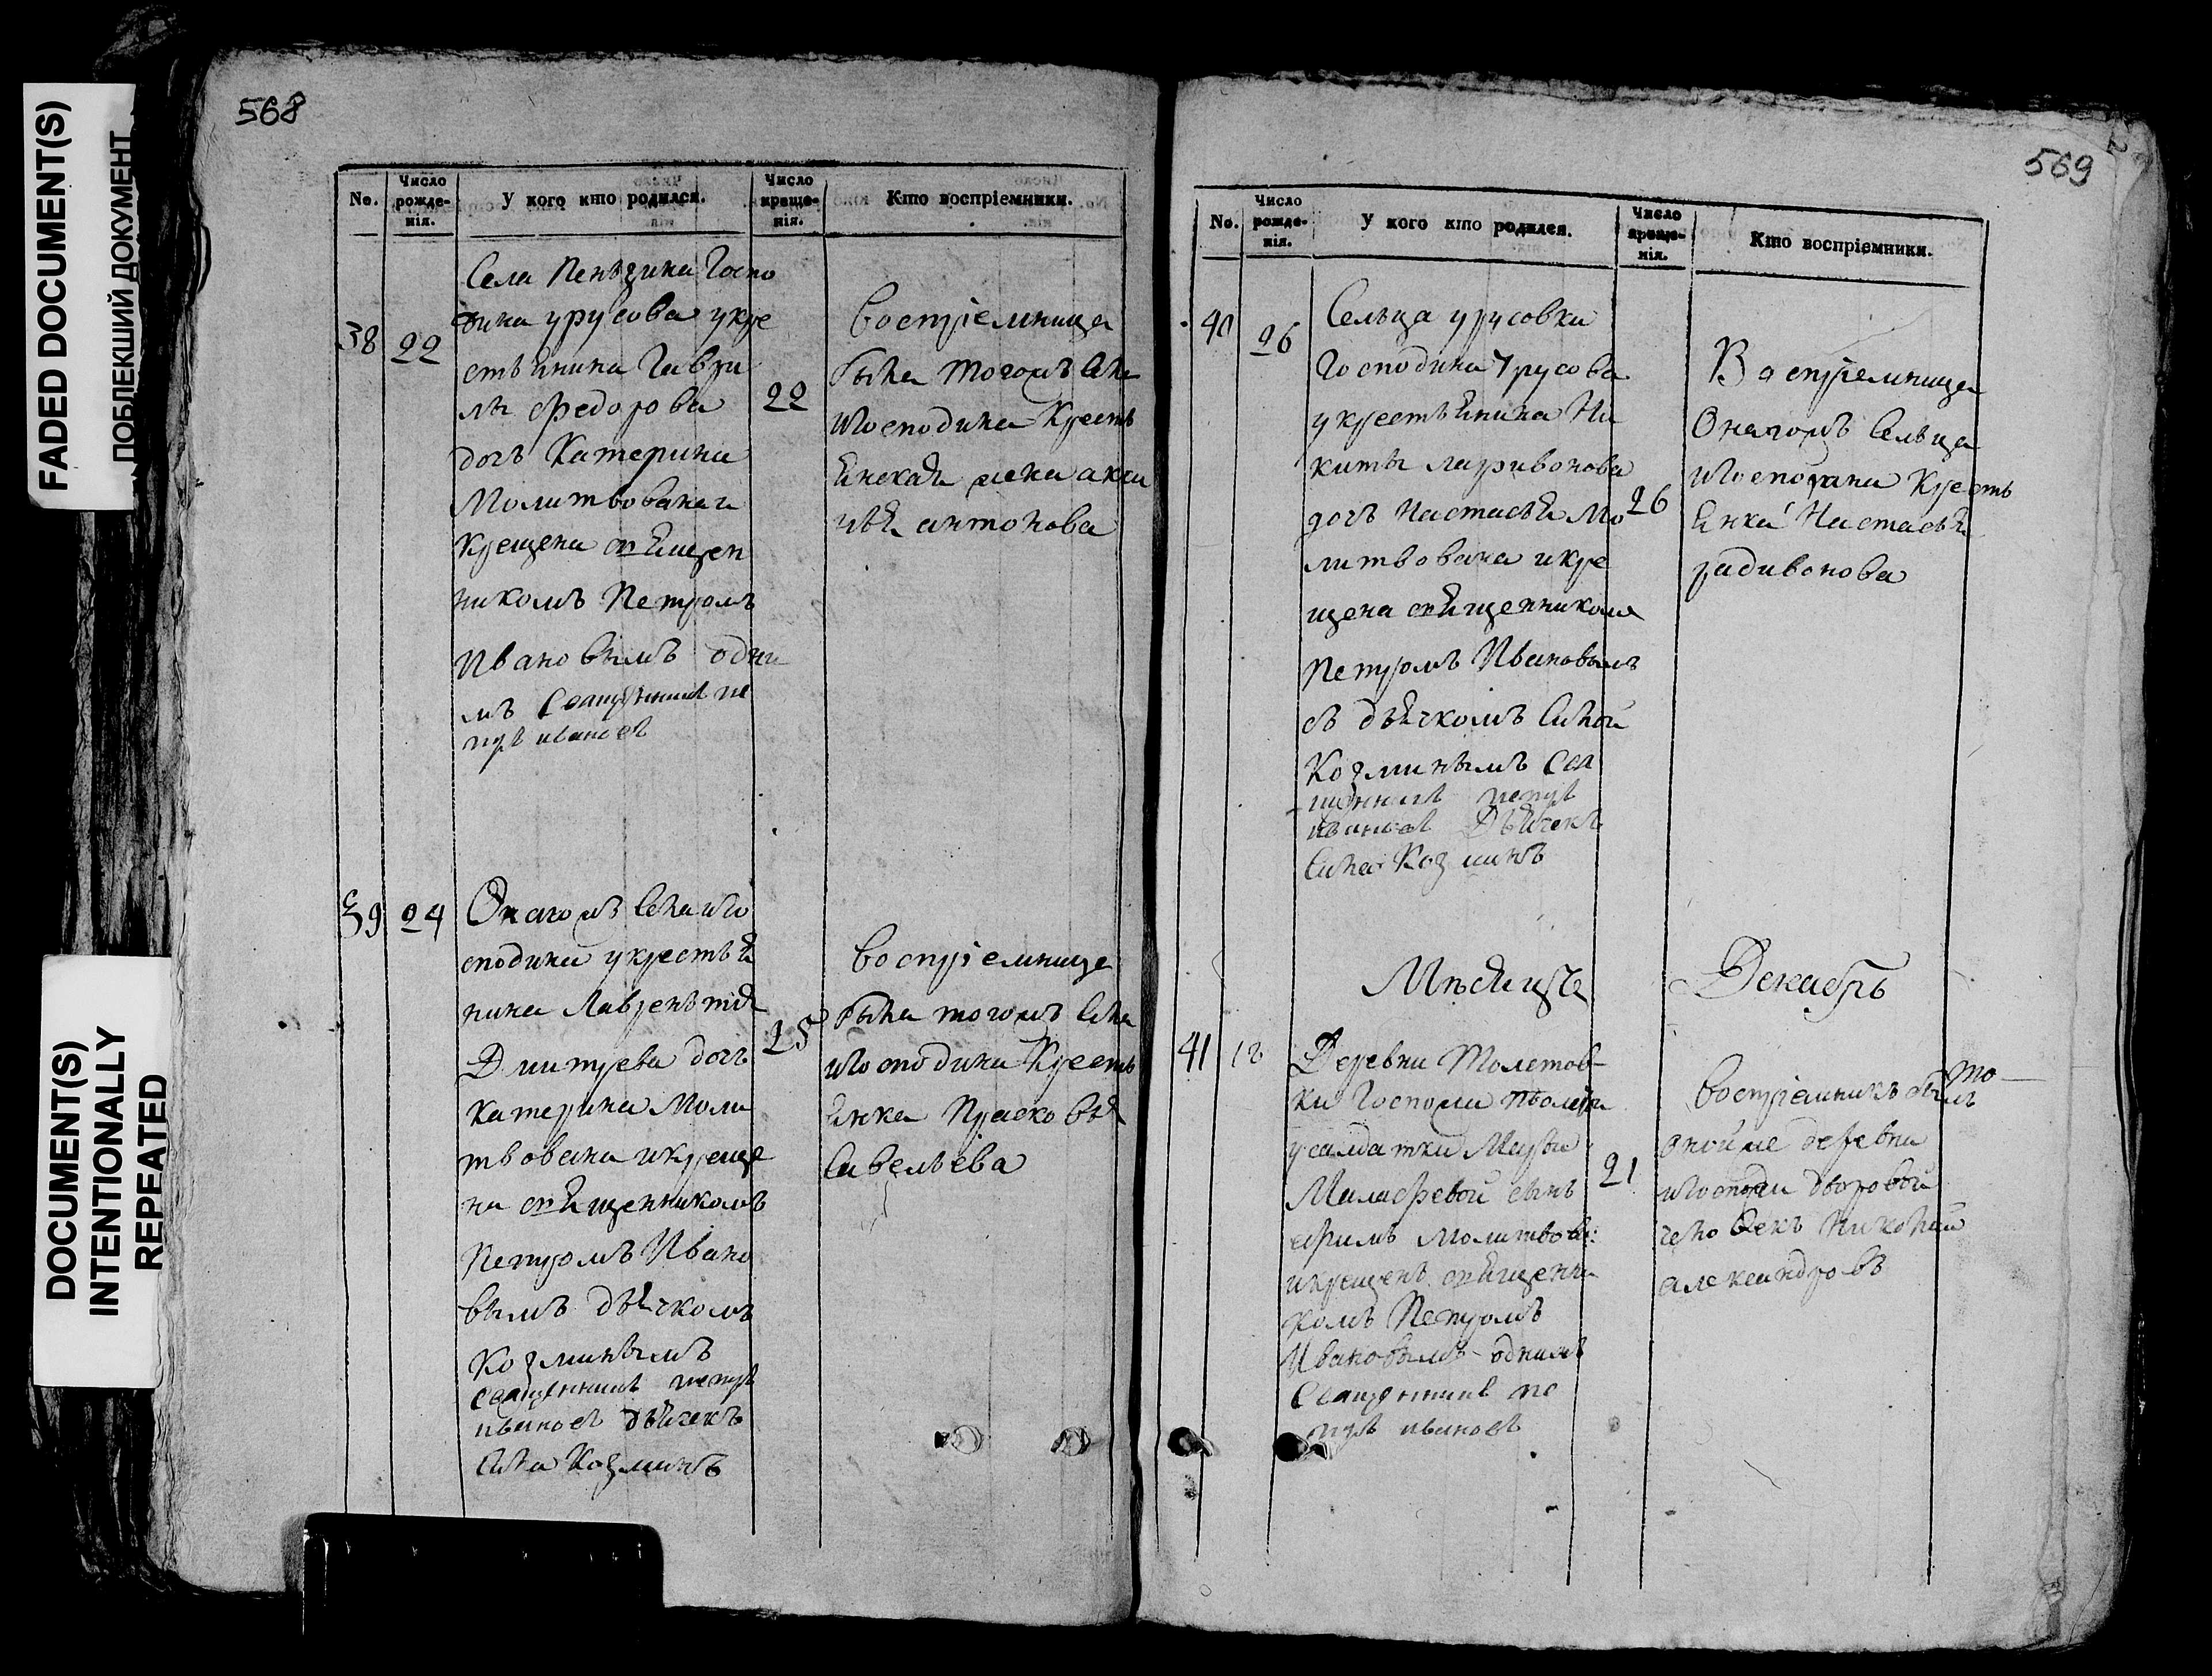 FADED DOCUMENT(S)
ПОБЛЕКШИЙ ДОКУМЕНТ
DOCUMENT(S)
INTENTIONALLY
REPEATED
568
No.
Число рожденія.
У кого кто родился.
Число крещенія.
Кто воспріемники.
38
22
Села Пенѣзина Госпо
дина урусова укре
стьянина Гаври
лы Федорова
дочь Катерина
Молитвована и
крещена священ
никомъ Петромъ
Ивановымъ одни
мъ Священникъ пе
тръ ивановъ
22
воспріемница
была тогожъ села
игосподина Кресть
янская жена акси
нья антонова
39
24
Оногожъ села иго
сподина укрестья
нина Лаврентия
Дмитрева дочь
катерина Моли
твована икреще
на священникомъ
Петромъ Ивано
вымъ дьячкомъ
Козминымъ
священникъ петръ
ивановъ дьячекъ
Сила Козминъ
25
воспріемница
была тогожъ села
игосподина Кресть
янка Прасковья
Савельева
569
No.
Число рожденія.
У кого кто родился.
Число крещенія.
Кто воспріемники.
40
26
Сельца урусовки
Господина Урусова
укрестьянина Ни
киты ларивонова
дочь Настасья Мо
литвована икре
щена священникомъ
Петромъ Ивановымъ
съ дьячкомъ Силой
Козминымъ Свя
щенникъ петръ
ивановъ Дьячекъ
Сила Козминъ
26
Воспріемница
Оногожъ Сельца
игосподина Кресть
янка Настасья
радивонова
Мѣсяцъ
Декабрь
41
Деревни
усалдатки Марьи
сынъ
ефимъ Молитвов:
икрещенъ священни
комъ Петромъ
Ивановымъ однимъ
Священникъ пе
тръ ивановъ
21
воспріемникъ былъ
то
оной же деревни
дворовой
человекъ Николай
александровъ